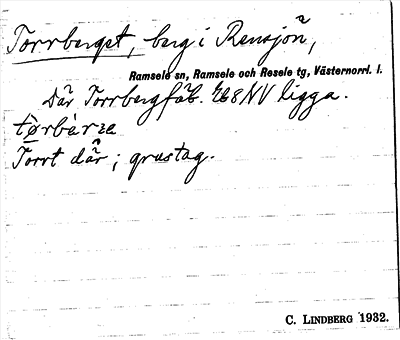 Torrberget, berg i Rensjön,
Ramsele sn, Ramsele och Resele tg, Västernorrl. l.
där Torrbergfäb. 8 NV ligga.
Torrt där; grustag.
C. LINDBERG 1932.